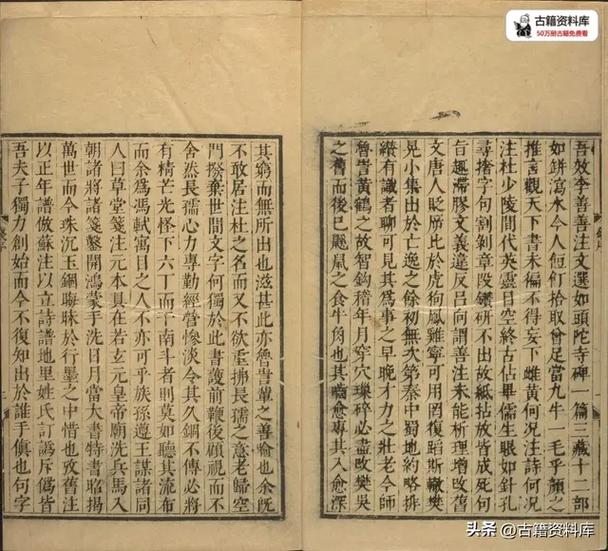 吾效李善善注文選如頭陀寺碑一篇三藏十二部
如缾瀉水今人餖飣拾取曾足當九牛一毛乎顏之
推言觀天下書未徧不得妄下雌黃何況注詩何況
注杜少陵間代英靈目空終古佔畢儒生眼如針孔
尋撦字句割剝章段鑽研不出故紙拈放皆成死句
旨趣滯膠文義違反呂向謂善注未能析理增改舊
文唐人貶斥比於虎狗鳳雞寧可用罔復蹈斯轍樊
晃小集出於亡逸之餘初無次第秦中蜀地約略排
纘有識者聊可見其爲事之早晚才力之壯老今師
魯訔黃鶴之故智鉤稽年月穿穴瑣碎必盡改樊吳
之舊而後已鼷鼠之食牛角也其齧愈專其入愈深
其窮而無所出也滋甚此亦魯訔輩之善喻也余既
不敢居注杜之名而又不欲重拂長孺之意老歸空
門撥棄世間文字何獨於此書護前鞭後顧視而不
舍然長孺心力專勤經營慘淡令其久錮不傳必將
有精芒光怪下六丁而干南斗者則莫如聽其流布
而余爲馮軾寓目之人不亦可乎族孫遵王謀諸同
人曰草堂箋注元本具在若玄元皇帝廟洗兵馬入
朝諸將諸箋鑿開鴻蒙手洗日月當大書特書昭揭
萬世而今珠沉玉錮晦昧於行墨之中惜也攷舊注
以正年譜倣蘇注以立詩譜地里姓氏訂譌斥僞皆
吾夫子獨力創始而今不復知出於誰手傎也句字
古籍资料库
50万册古籍免费看
头条 @古籍资料库